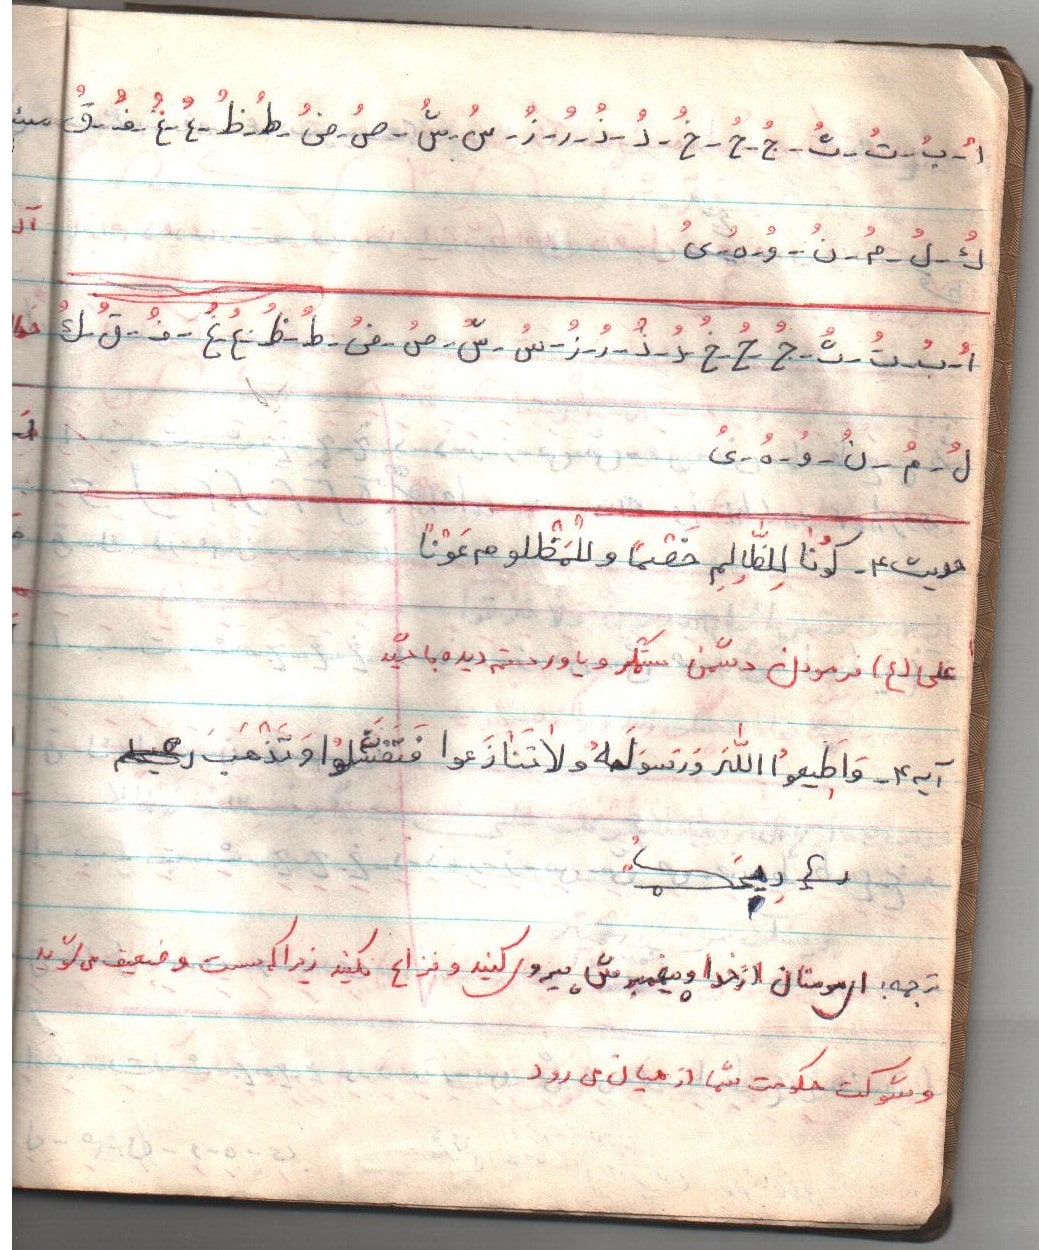 اُ - بُ - تُ - ثُ - جُ - حُ - خُ - دُ - ذُ - رُ - زُ - سُ - شُ - صُ - ضُ - طُ - ظُ - عُ - غُ - فُ - قُ
كُ - لُ - مُ - نُ - وُ - هُ - یُ
اُ - بُ - تُ - ثُ - جُ - حُ - خُ - دُ - ذُ - رُ - زُ - سُ - شُ - صُ - ضُ - طُ - ظُ - عُ - غُ - فُ - قُ - كُ
لُ - مُ - نُ - وُ - هُ - یُ
حدیث ۴ - كُونٰا لِلظّٰالِمِ خَصْمًا و لِلْمَظْلوم عَوْنًا
علی (ع) فرمودن دشمن ستمگر و یاور ستم دیده باشید
آیه ۴ - وَ اَطِیعوُا اللّٰهَ وَ رَسوُلَهُ و لاٰ تَنٰازَعوا فَتَفْشَلُوا وَ تَذْهَبَ
ترجمه: ای مومنان از خدا و پیغمبرش پیروی کنید و نزاع نکنید زیرا که سست و ضعیف می شوید
و شوکت حکومت شما از میان می رود